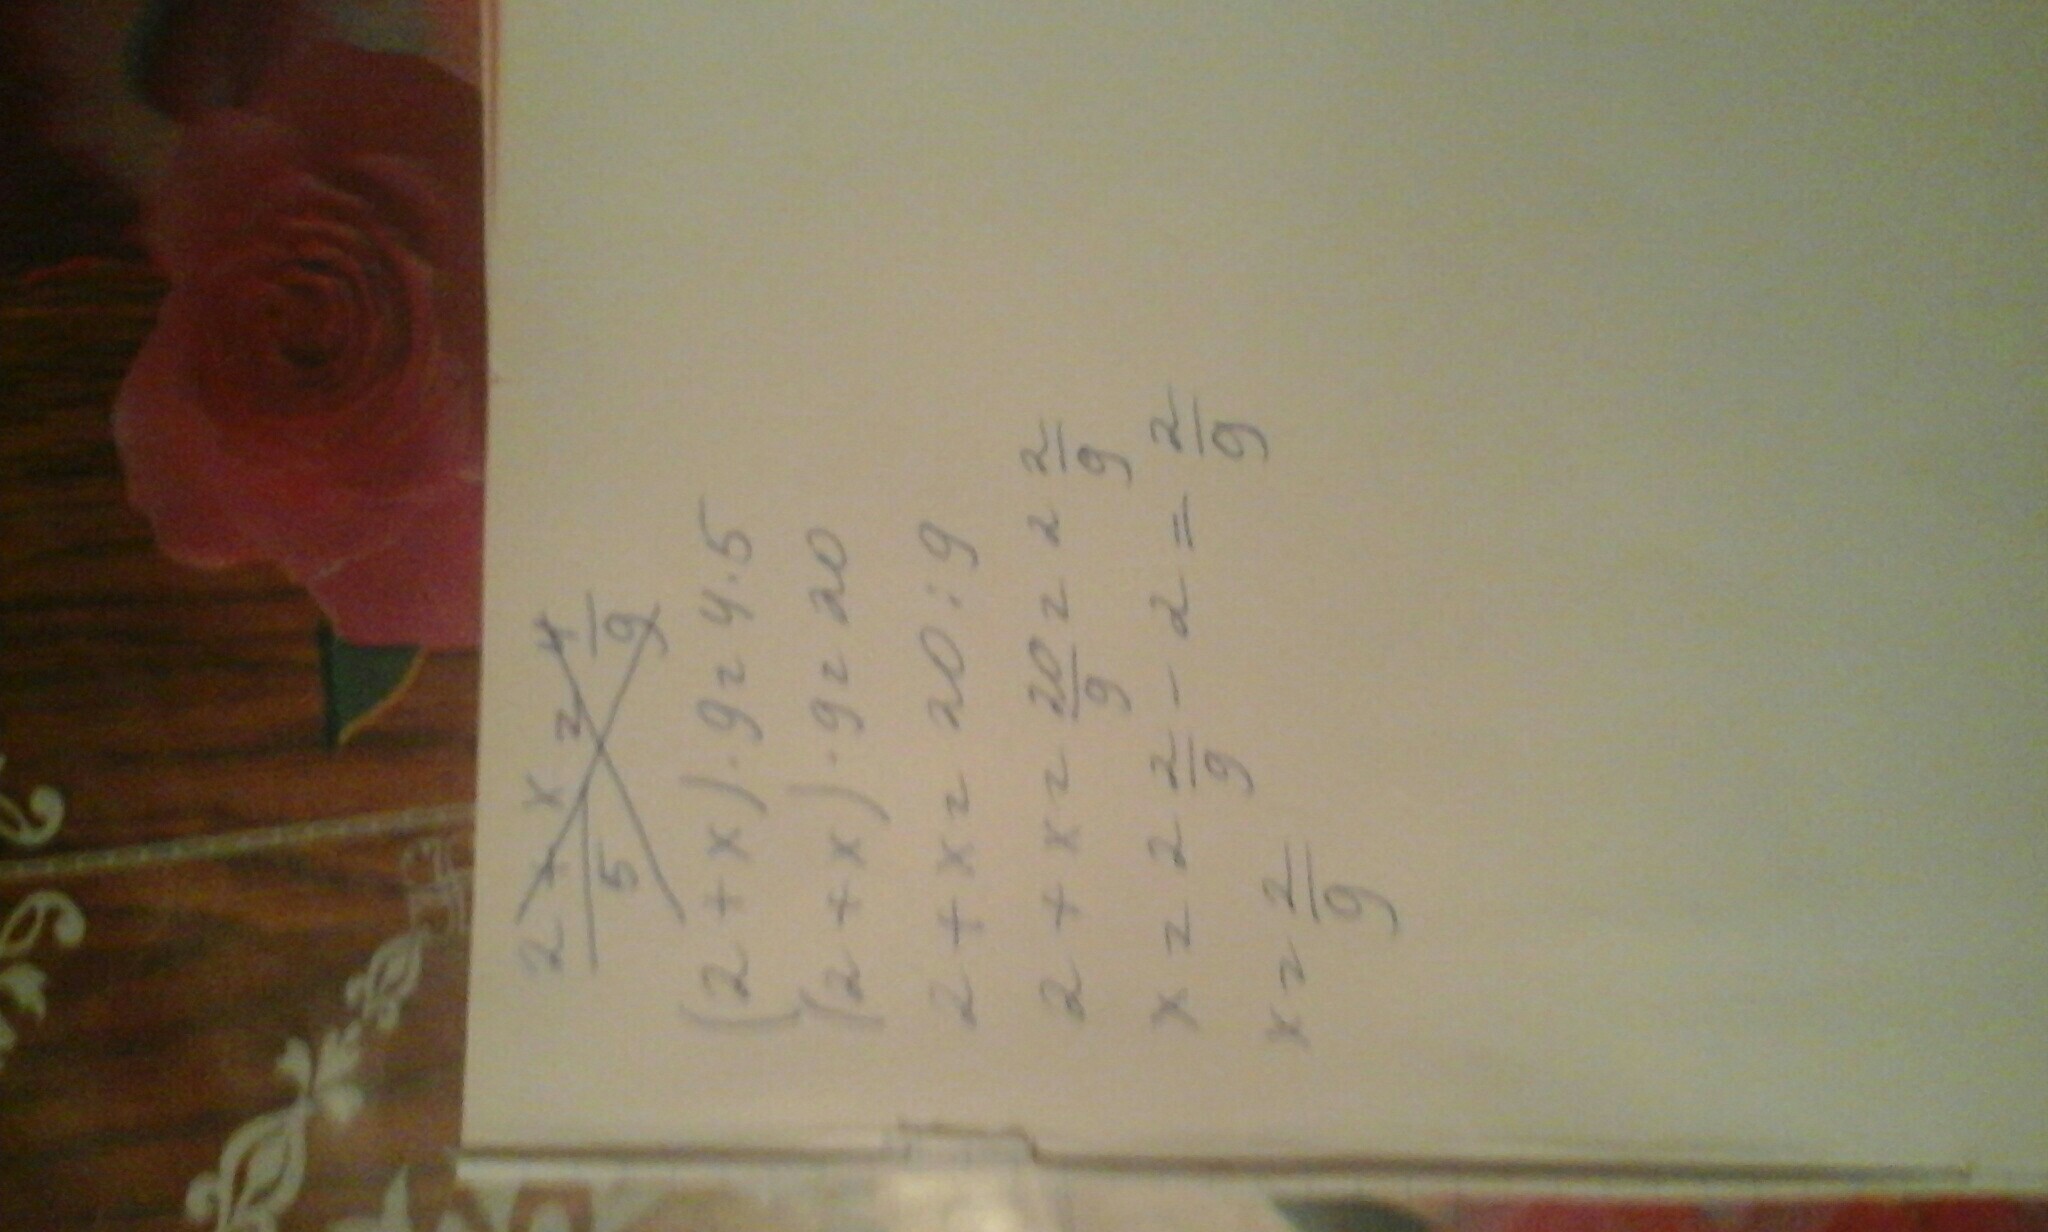 (2+x)/5 = 4/9
(2+x)·9=4·5
(2+x)·9=20
2+x=20:9
2+x=20/9=2 2/9
x=2 2/9-2=2/9
x=2/9